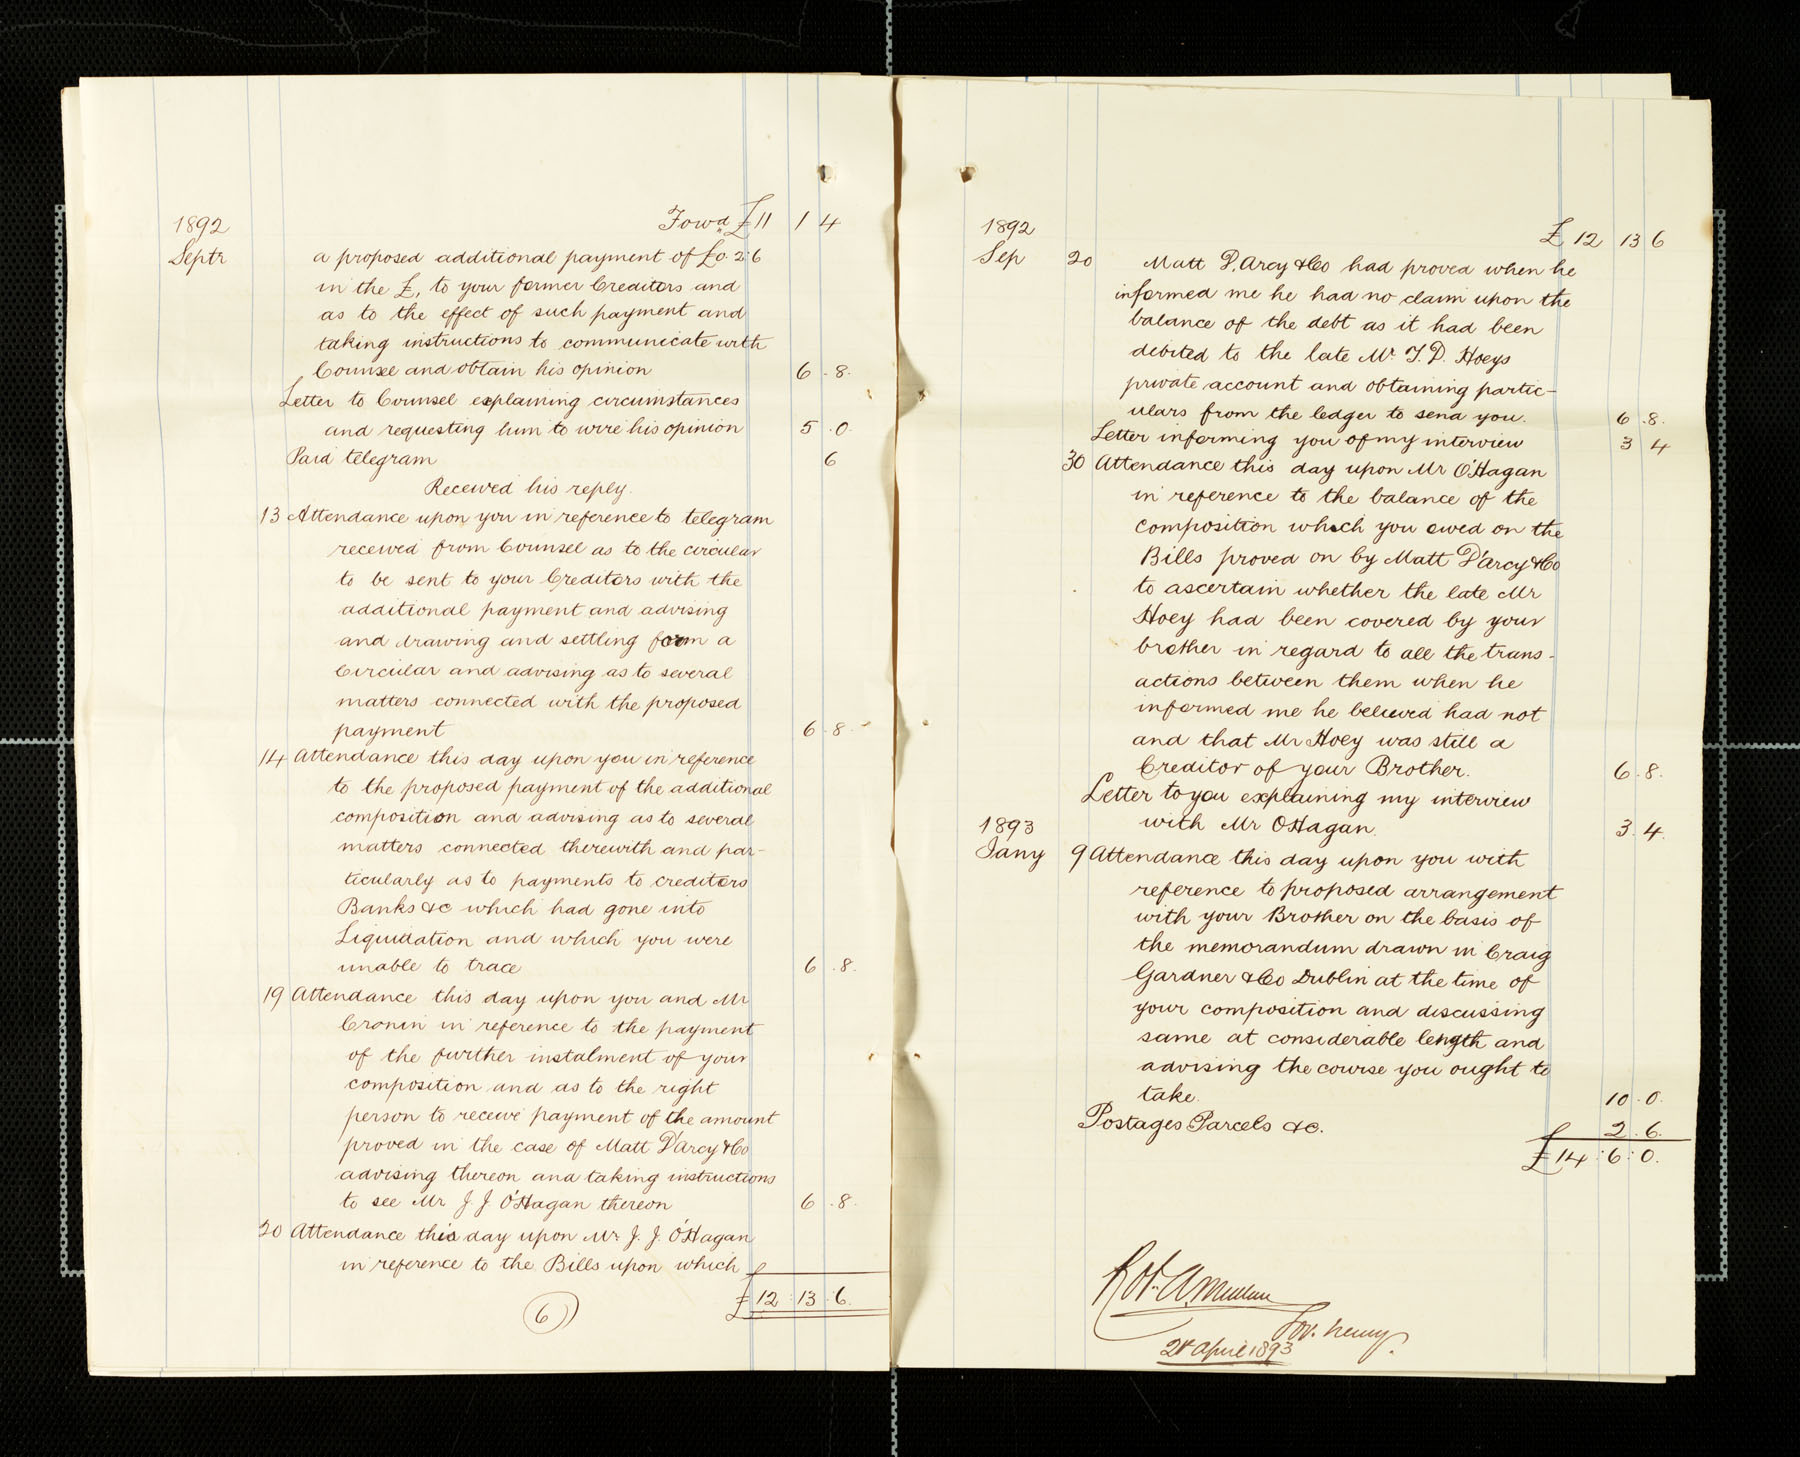 1892 Fowd £11 1 4
Septr a proposed additional payment of £0.2.6
in the £, to your former Creditors and
as to the effect of such payment and
taking instructions to communicate with
Counsel and obtain his opinion 6.8.
Letter to Counsel explaining circumstances
and requesting him to wire his opinion 5.0
Paid telegram 6
Received his reply.
13 Attendance upon you in reference to telegram
received from Counsel as to the circular
to be sent to your Creditors with the
additional payment and advising
and drawing and settling form a
Circular and advising as to several
matters connected with the proposed
payment 6.8
14 Attendance this day upon you in reference
to the proposed payment of the additional
composition and advising as to several
matters connected therewith and par-
ticularly as to payments to creditors
Banks &c which had gone into
Liquidation and which you were
unable to trace 6.8.
19 Attendance this day upon you and Mr
Cronin in reference to the payment
of the further instalment of your
composition and as to the right
person to receive payment of the amount
proved in the case of Matt D'Arcy & Co
advising thereon and taking instructions
to see Mr J. J O'Hagan thereon 6.8.
20 Attendance this day upon Mr. J. J. O'Hagan
in reference to the Bills upon which
£12:13:6.
6
1892 £12 13 6
Sep 20 Matt D,Arcy & Co had proved when he
informed me he had no claim upon the
balance of the debt as it had been
debited to the late Mr. J. D. Hoeys
private account and obtaining partic-
ulars from the ledger to send you. 6.8.
Letter informing you of my interview 3 4
30 Attendance this day upon Mr O'Hagan
in reference to the balance of the
composition which you owed on the
Bills proved on by Matt D'Arcy & Co
to ascertain whether the late Mr
Hoey had been covered by your
brother in regard to all the trans-
actions between them when he
informed me he believed had not
and that Mr Hoey was still a
Creditor of your Brother. 6.8.
Letter to you explaining my interview
with Mr OHagan. 3.4.
1893
Jany 9 Attendance this day upon you with
reference to proposed arrangement
with your Brother on the basis of
the memorandum drawn in Craig
Gardner & Co Dublin at the time of
your composition and discussing
same at considerable length and
advising the course you ought to
take. 10.0.
Postages Parcels &c. 2.6.
£14:6:0.
Sov. Newry.
April 1893